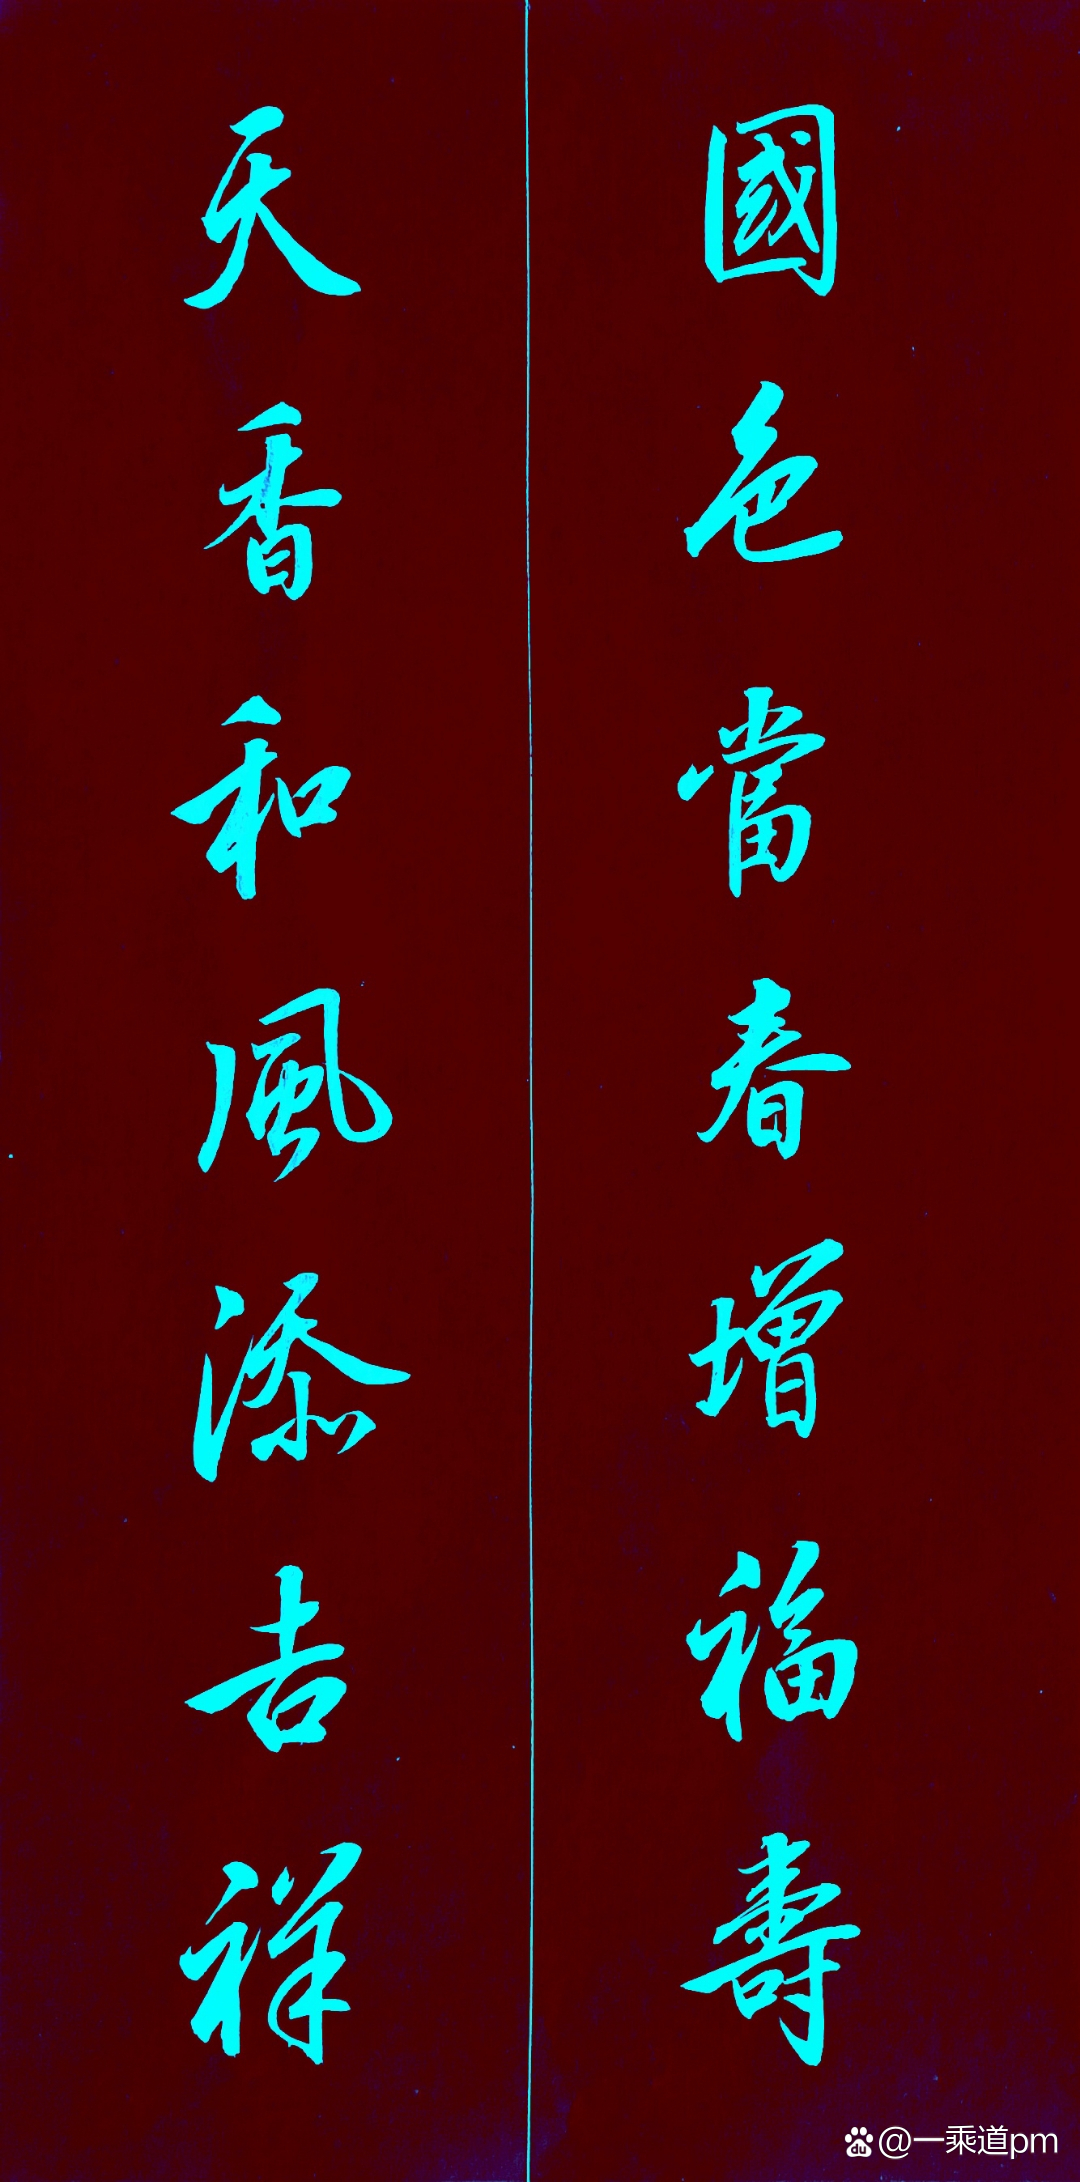 國色當春增福壽
天香和風添吉祥
du
@一乘道pm